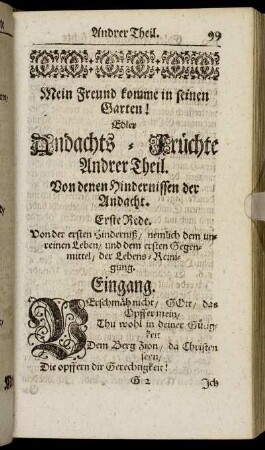 Andrer Theil. 99
Mein Freund komme in seinen
Garten!
Edler
Andachts - Früchte
Andrer Theil.
Von denen Hindernissen der
Andacht.
Erste Rede.
Von der ersten Hinderniß/ nemlich dem un-
reinen Leben/ und dem ersten Gegen-
mittel/ der Lebens-Reini-
gung.
Eingang.
VErschmäh nicht/ GOtt/ das
Opffer mein/
Thu wohl in deiner Gütig-
keit
Dem Berg Zion/ da Christen
seyn/
Die opffern dir Gerechtigkeit!
G 2 Ich